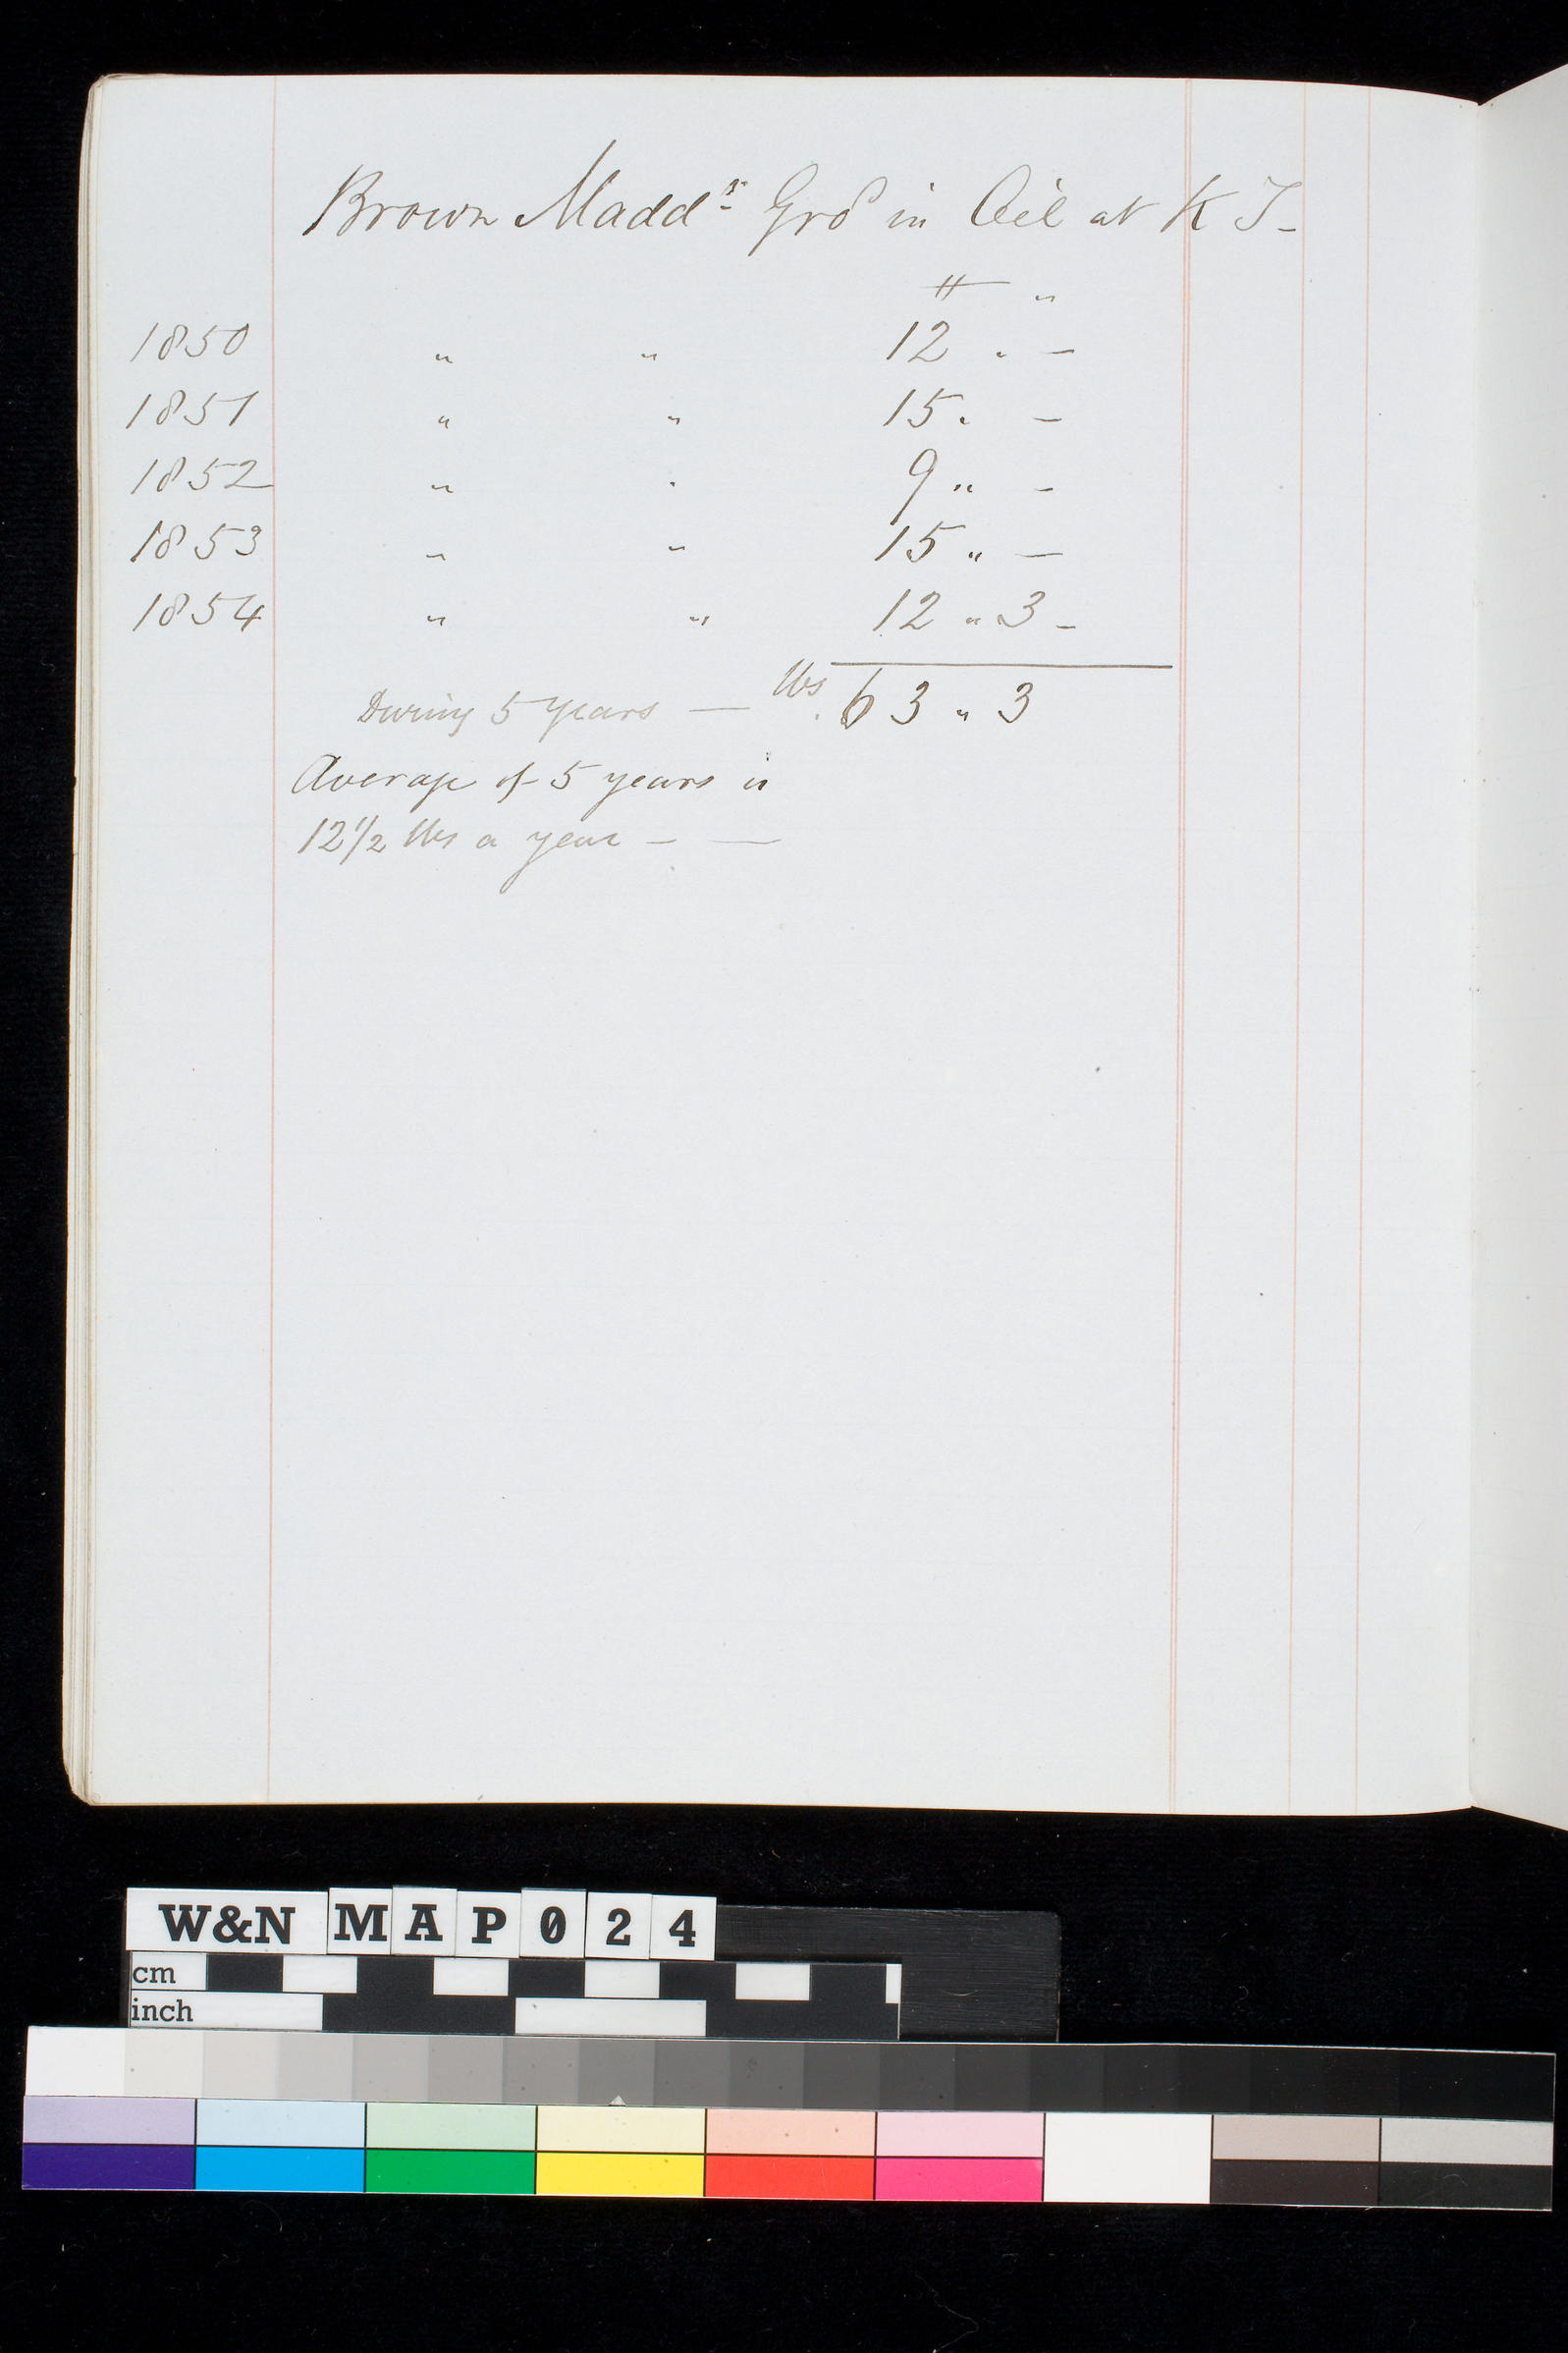 Brown Maddr Grd in Oil at K T -
lb "
1850 " " 12 " -
1851 " " 15 " -
1852 " " 9 " -
1853 " " 15 " -
1854 " " 12 " 3 -
During 5 years — lbs 63 " 3
Average of 5 years is
12 1/2 lbs a year - —
W&N MAP024
cm
inch